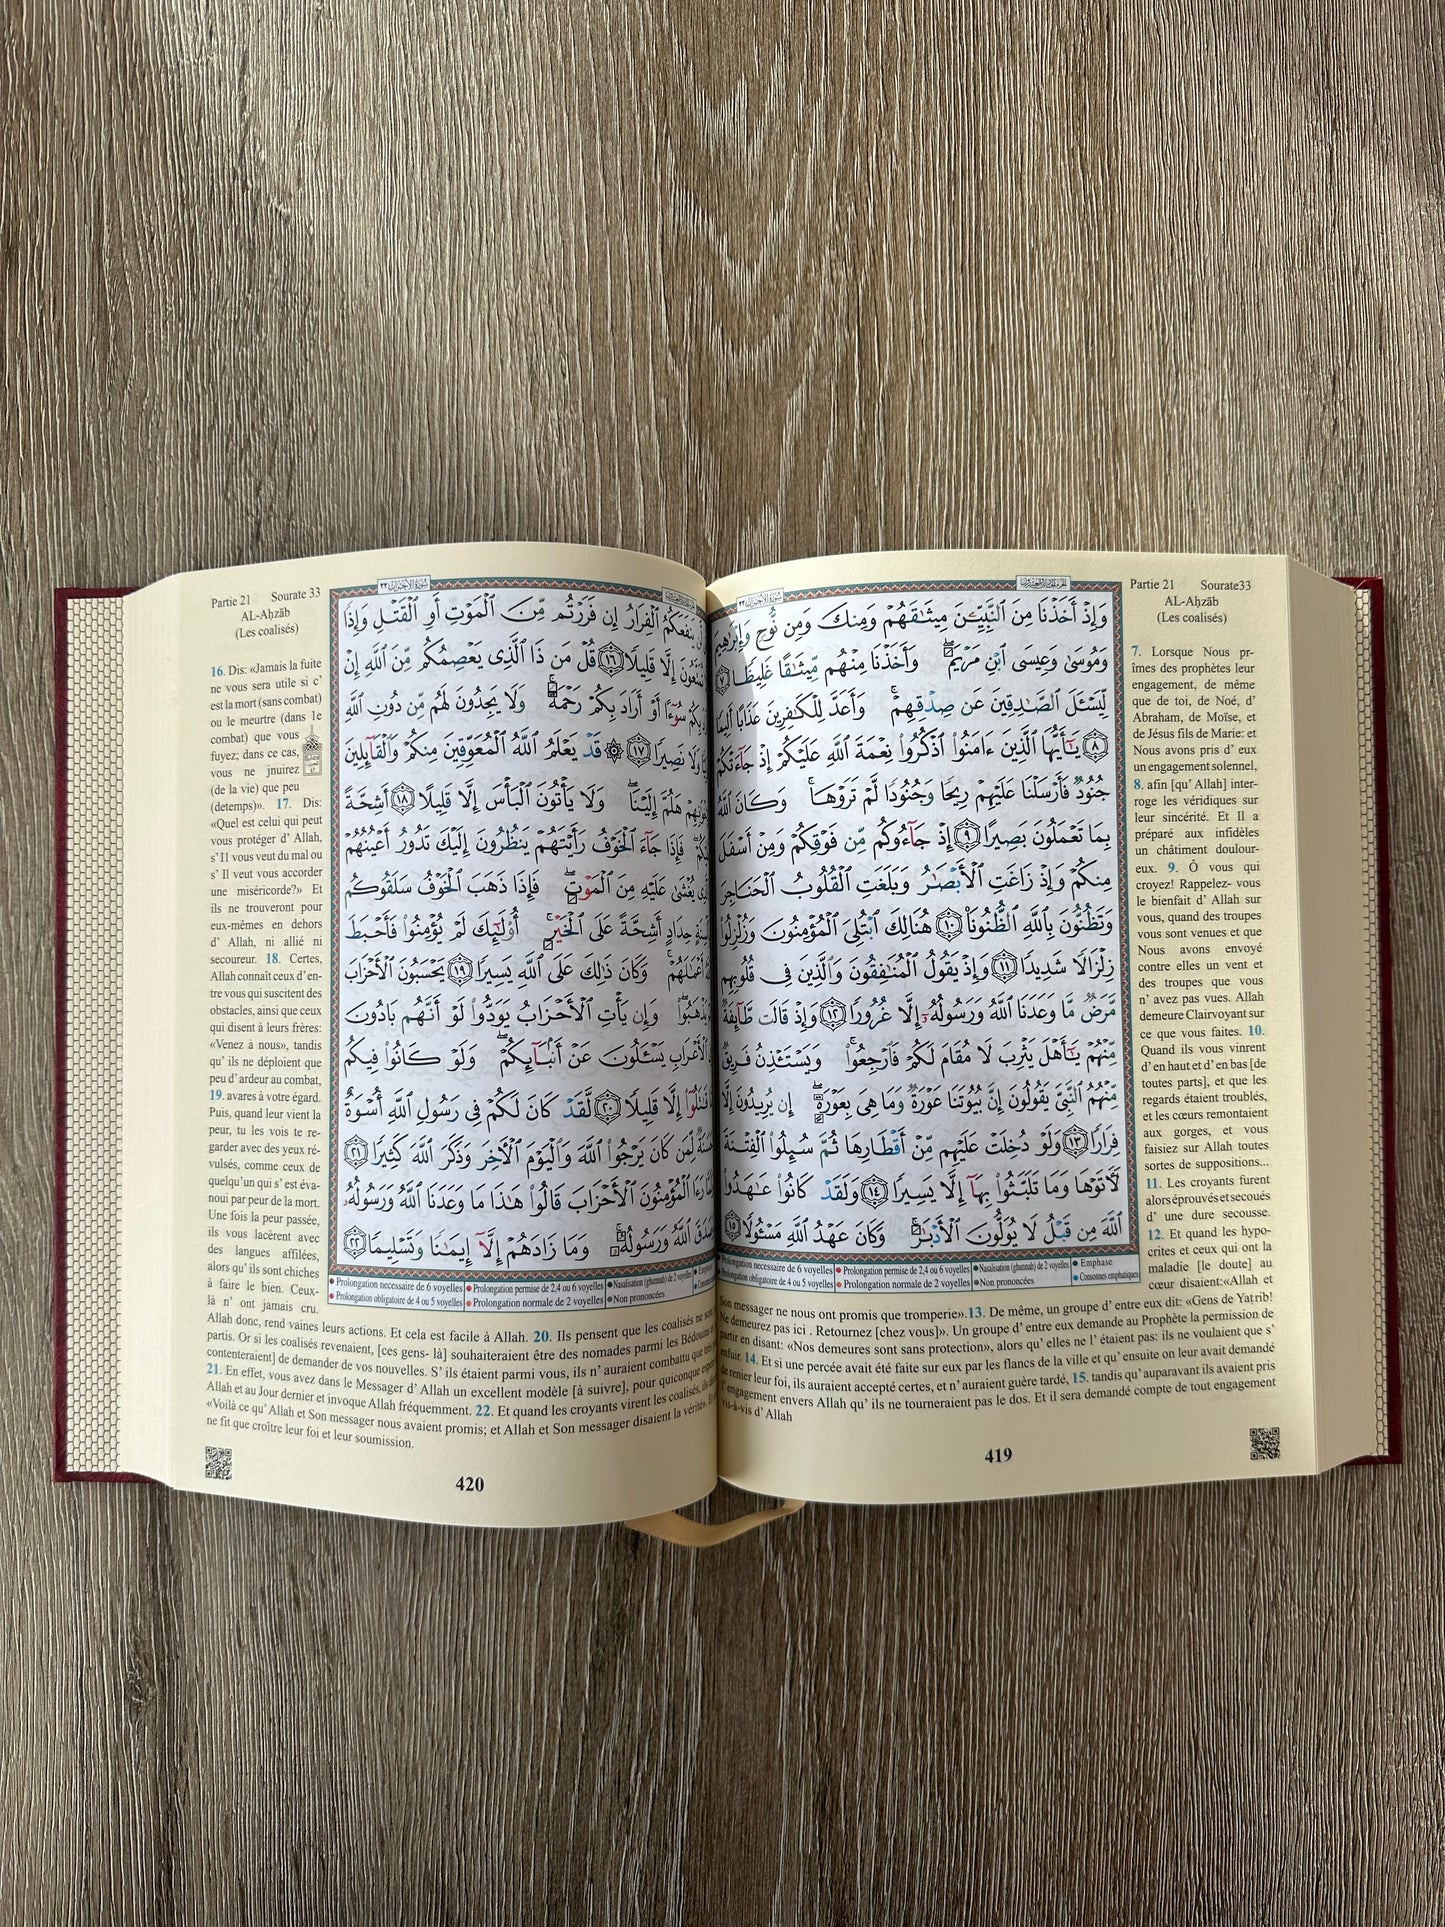 Partie 21 Sourate33
AL-Aḥzāb
(Les coalisés)
سورة الأحزاب ٣٣
وَإِذْ أَخَذْنَا مِنَ ٱلنَّبِيِّـۧنَ مِيثَـٰقَهُمْ وَمِنكَ وَمِن نُّوحٍ وَإِبْرَٰهِيمَ
وَمُوسَىٰ وَعِيسَى ٱبْنِ مَرْيَمَ ۖ وَأَخَذْنَا مِنْهُم مِّيثَـٰقًا غَلِيظًا ٧
لِّيَسْـَٔلَ ٱلصَّـٰدِقِينَ عَن صِدْقِهِمْ ۚ وَأَعَدَّ لِلْكَـٰفِرِينَ عَذَابًا أَلِيمًا
٨ يَـٰٓأَيُّهَا ٱلَّذِينَ ءَامَنُوا۟ ٱذْكُرُوا۟ نِعْمَةَ ٱللَّهِ عَلَيْكُمْ إِذْ جَآءَتْكُمْ
جُنُودٌ فَأَرْسَلْنَا عَلَيْهِمْ رِيحًا وَجُنُودًا لَّمْ تَرَوْهَا ۚ وَكَانَ ٱللَّهُ
بِمَا تَعْمَلُونَ بَصِيرًا ٩ إِذْ جَآءُوكُم مِّن فَوْقِكُمْ وَمِنْ أَسْفَلَ
مِنكُمْ وَإِذْ زَاغَتِ ٱلْأَبْصَـٰرُ وَبَلَغَتِ ٱلْقُلُوبُ ٱلْحَنَاجِرَ
وَتَظُنُّونَ بِٱللَّهِ ٱلظُّنُونَا۠ ١٠ هُنَالِكَ ٱبْتُلِىَ ٱلْمُؤْمِنُونَ وَزُلْزِلُوا۟
زِلْزَالًا شَدِيدًا ١١ وَإِذْ يَقُولُ ٱلْمُنَـٰفِقُونَ وَٱلَّذِينَ فِى قُلُوبِهِم
مَّرَضٌ مَّا وَعَدَنَا ٱللَّهُ وَرَسُولُهُۥٓ إِلَّا غُرُورًا ١٢ وَإِذْ قَالَت طَّآئِفَةٌ
مِّنْهُمْ يَـٰٓأَهْلَ يَثْرِبَ لَا مُقَامَ لَكُمْ فَٱرْجِعُوا۟ ۚ وَيَسْتَـْٔذِنُ فَرِيقٌ
مِّنْهُمُ ٱلنَّبِىَّ يَقُولُونَ إِنَّ بُيُوتَنَا عَوْرَةٌ وَمَا هِىَ بِعَوْرَةٍ ۖ إِن يُرِيدُونَ إِلَّا
فِرَارًا ١٣ وَلَوْ دُخِلَتْ عَلَيْهِم مِّنْ أَقْطَارِهَا ثُمَّ سُئِلُوا۟ ٱلْفِتْنَةَ
لَـَٔاتَوْهَا وَمَا تَلَبَّثُوا۟ بِهَآ إِلَّا يَسِيرًا ١٤ وَلَقَدْ كَانُوا۟ عَـٰهَدُوا۟
ٱللَّهَ مِن قَبْلُ لَا يُوَلُّونَ ٱلْأَدْبَـٰرَ ۚ وَكَانَ عَهْدُ ٱللَّهِ مَسْـُٔولًا ١٥
Prolongation necessaire de 6 voyelles Prolongation permise de 2,4 ou 6 voyelles Nasalisation (ghunnah) de 2 voyelles Emphase
obligatoire de 4 ou 5 voyelles Prolongation normale de 2 voyelles Non prononcées Consonnes emphatiques
7. Lorsque Nous pr-
îmes des prophètes leur
engagement, de même
que de toi, de Noé, d'
Abraham, de Moïse, et
de Jésus fils de Marie: et
Nous avons pris d' eux
un engagement solennel,
8. afin [qu' Allah] inter-
roge les véridiques sur
leur sincérité. Et Il a
préparé aux infidèles
un châtiment doulour-
eux. 9. Ô vous qui
croyez! Rappelez- vous
le bienfait d' Allah sur
vous, quand des troupes
vous sont venues et que
Nous avons envoyé
contre elles un vent et
des troupes que vous
n' avez pas vues. Allah
demeure Clairvoyant sur
ce que vous faites. 10.
Quand ils vous vinrent
d' en haut et d' en bas [de
toutes parts], et que les
regards étaient troublés,
et les cœurs remontaient
aux gorges, et vous
faisiez sur Allah toutes
sortes de suppositions...
11. Les croyants furent
alors éprouvés et secoués
d' une dure secousse.
12. Et quand les hypo-
crites et ceux qui ont la
maladie [le doute] au
cœur disaient:«Allah et
Son messager ne nous ont promis que tromperie».13. De même, un groupe d' entre eux dit: «Gens de Yaṯrib!
Ne demeurez pas ici . Retournez [chez vous]». Un groupe d' entre eux demande au Prophète la permission de
partir en disant: «Nos demeures sont sans protection», alors qu' elles ne l' étaient pas: ils ne voulaient que s'
enfuir. 14. Et si une percée avait été faite sur eux par les flancs de la ville et qu' ensuite on leur avait demandé
de renier leur foi, ils auraient accepté certes, et n' auraient guère tardé, 15. tandis qu' auparavant ils avaient pris
l' engagement envers Allah qu' ils ne tourneraient pas le dos. Et il sera demandé compte de tout engagement
vis-à-vis d' Allah
419
Partie 21 Sourate 33
AL-Aḥzāb
(Les coalisés)
سورة الأحزاب ٣٣
يَنفَعَكُمُ ٱلْفِرَارُ إِن فَرَرْتُم مِّنَ ٱلْمَوْتِ أَوِ ٱلْقَتْلِ وَإِذًا
إِلَّا قَلِيلًا ١٦ قُلْ مَن ذَا ٱلَّذِى يَعْصِمُكُم مِّنَ ٱللَّهِ إِنْ
سُوٓءًا أَوْ أَرَادَ بِكُمْ رَحْمَةً ۚ وَلَا يَجِدُونَ لَهُم مِّن دُونِ ٱللَّهِ
وَلَا نَصِيرًا ١٧ ۞ قَدْ يَعْلَمُ ٱللَّهُ ٱلْمُعَوِّقِينَ مِنكُمْ وَٱلْقَآئِلِينَ
هَلُمَّ إِلَيْنَا ۖ وَلَا يَأْتُونَ ٱلْبَأْسَ إِلَّا قَلِيلًا ١٨ أَشِحَّةً
فَإِذَا جَآءَ ٱلْخَوْفُ رَأَيْتَهُمْ يَنظُرُونَ إِلَيْكَ تَدُورُ أَعْيُنُهُمْ
يُغْشَىٰ عَلَيْهِ مِنَ ٱلْمَوْتِ ۖ فَإِذَا ذَهَبَ ٱلْخَوْفُ سَلَقُوكُم
حِدَادٍ أَشِحَّةً عَلَى ٱلْخَيْرِ ۚ أُو۟لَـٰٓئِكَ لَمْ يُؤْمِنُوا۟ فَأَحْبَطَ
أَعْمَـٰلَهُمْ ۚ وَكَانَ ذَٰلِكَ عَلَى ٱللَّهِ يَسِيرًا ١٩ يَحْسَبُونَ ٱلْأَحْزَابَ
يَذْهَبُوا۟ ۖ وَإِن يَأْتِ ٱلْأَحْزَابُ يَوَدُّوا۟ لَوْ أَنَّهُم بَادُونَ
ٱلْأَعْرَابِ يَسْـَٔلُونَ عَنْ أَنۢبَآئِكُمْ ۖ وَلَوْ كَانُوا۟ فِيكُم
قَـٰتَلُوٓا۟ إِلَّا قَلِيلًا ٢٠ لَّقَدْ كَانَ لَكُمْ فِى رَسُولِ ٱللَّهِ أُسْوَةٌ
لِّمَن كَانَ يَرْجُوا۟ ٱللَّهَ وَٱلْيَوْمَ ٱلْـَٔاخِرَ وَذَكَرَ ٱللَّهَ كَثِيرًا ٢١
رَءَا ٱلْمُؤْمِنُونَ ٱلْأَحْزَابَ قَالُوا۟ هَـٰذَا مَا وَعَدَنَا ٱللَّهُ وَرَسُولُهُۥ
وَصَدَقَ ٱللَّهُ وَرَسُولُهُۥ ۚ وَمَا زَادَهُمْ إِلَّآ إِيمَـٰنًا وَتَسْلِيمًا ٢٢
Prolongation necessaire de 6 voyelles Prolongation permise de 2,4 ou 6 voyelles Nasalisation (ghunnah) de 2 voyelles
Prolongation obligatoire de 4 ou 5 voyelles Prolongation normale de 2 voyelles Non prononcées
16. Dis: «Jamais la fuite
ne vous sera utile si c'
est la mort (sans combat)
ou le meurtre (dans 1e
combat) que vous
fuyez; dans ce cas,
vous ne jnuirez
(de la vie) que peu
(detemps)». 17. Dis:
«Quel est celui qui peut
vous protéger d' Allah,
s' Il vous veut du mal ou
s' Il veut vous accorder
une miséricorde?» Et
ils ne trouveront pour
eux-mêmes en dehors
d' Allah, ni allié ni
secoureur. 18. Certes,
Allah connaît ceux d' en-
tre vous qui suscitent des
obstacles, ainsi que ceux
qui disent à leurs frères:
«Venez à nous», tandis
qu' ils ne déploient que
peu d' ardeur au combat,
19. avares à votre égard.
Puis, quand leur vient la
peur, tu les vois te re-
garder avec des yeux ré-
vulsés, comme ceux de
quelqu'un qui s' est éva-
noui par peur de la mort.
Une fois la peur passée,
ils vous lacèrent avec
des langues affilées,
alors qu' ils sont chiches
à faire le bien. Ceux-
là n' ont jamais cru.
Allah donc, rend vaines leurs actions. Et cela est facile à Allah. 20. Ils pensent que les coalisés ne sont
partis. Or si les coalisés revenaient, [ces gens- là] souhaiteraient être des nomades parmi les Bédouins
contenteraient] de demander de vos nouvelles. S' ils étaient parmi vous, ils n' auraient combattu que très
21. En effet, vous avez dans le Messager d' Allah un excellent modèle [à suivre], pour quiconque
Allah et au Jour dernier et invoque Allah fréquemment. 22. Et quand les croyants virent les coalisés, ils
«Voilà ce qu' Allah et Son messager nous avaient promis; et Allah et Son messager disaient la vérité».
ne fit que croître leur foi et leur soumission.
420